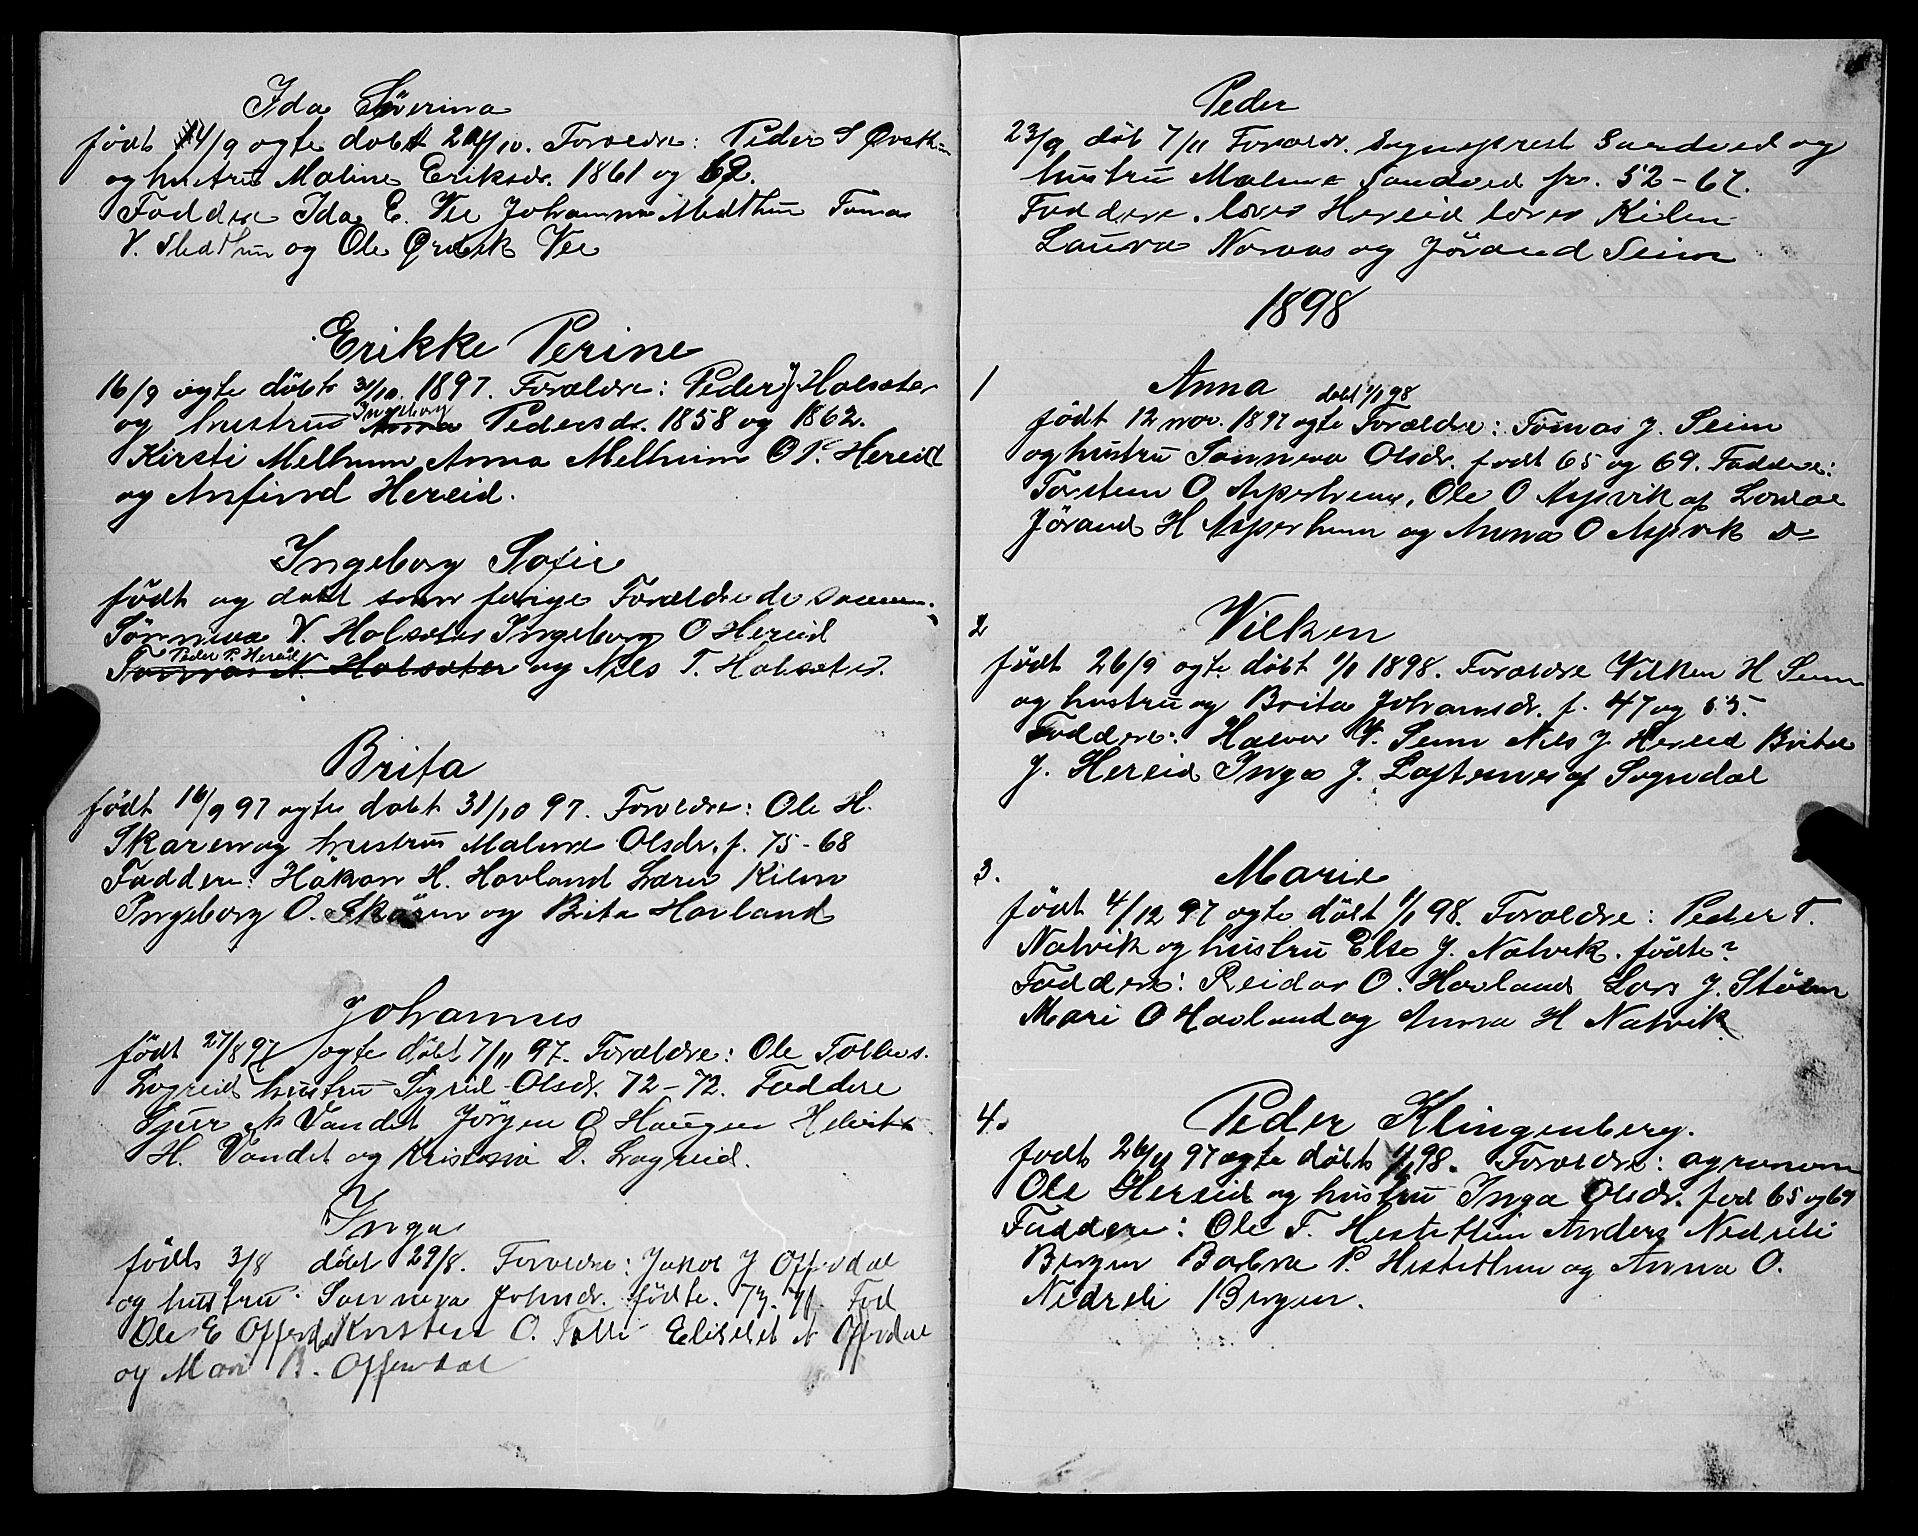 Ida Severina
født 14/9 ægte døbt 24/10. Foreldre: Peder S
og hustru Maline Eriksdr. 1861 og 62.
Faddere Ida E. Vee Johanna Melthun Tomas
V. og Ole Vee
Erikke Perine
16/9 ægte døbt 31/10. 1897. Forældre: Peder J Holsæter
og hustru Ingeborg Pedersdr. 1858 og 1862.
Kirsti Melhum Anna Melheim O P. Hereid
og Anfind Hereid.
Ingeborg Sofie
født og døbt som forige Forældre de samme.
Sønneva V. Holsæter Ingeborg O Hereid
Peder P. Hereid
Tomas N. Holsæter og Nils T. Holsæter.
Brita
født 16/9 97 ægte døbt 31/10 97. Foreldre: Ole H.
Skaren og hustru Malene Olsdr. f. 75-68
Faddere: Håkon H. Hovland Lærer Kilen
Ingeborg O. Skåren og Brita Hovland
Johannes
født 27/8 97 ægte døbt 7/11 97. Forældre: Ole Tollevs.
Lægreid hustru Sigrid Olsdr. 72-72. Faddere
Sjur Vandet Jörgen O Haugen
H. Vandet og Kristina D. Lægreid.
Inga
født 3/8 døbt 29/8. Foreldre: Jakob J Offerdal
og hustru: Sønneva Johndr. fødte. 73. 71. Fad
Ole E Offerdal Kirsten O. Elisebet Offerdal
og Mari B. Offerdal
Peder
23/9 døbt 7/11 Foreldr. Sogneprest Sandved og
hustru Malene Sandved fr. 52-67.
Faddere. lærer Hereid lærer Kilen
Laura Noraas og Jörand Seim
1898
1 Anna døbt 1/1 98
født 12 nov. 1897 ægte Forældre: Tomas J. Seim
og hustru Sønneva Olsdr. født 65 og 69. Faddere:
Torstein O Asperheim, Ole O Aspvik af Lærdal
Jörand H Asperheim og Anna O Aspvik D=
2 Vilken
født 26/9 ægte døbt 1/1 1898. Foreldre Vilken H Seim
og hustru og Brita Johansdr. f. 47 og 55.
Faddere: Halvor V. Seim Nils J Hereid Brita
J. Hereid Inga J. Loftesnes af Sogndal
3. Marie
født 4/12 97 ægte døbt 1/1 98. Foreldre: Peder T.
Natvik og hustru Else J. Natvik. fødte?
Faddere: Reidar O. Hovland Lars J. Stöen
Mari O Hovland og Anna H Natvik
4. Peder Klingenberg.
født 26/11 97 ægte døbt 1/1 98. Foreldre: agronom
Ole Hereid og hustru Inga Olsdr. fød 65 og 69
Faddere: Ole T. Hestethun Anders Nedreli
Bergen P. Hestethun og Anna O.
Nedreli Bergen.